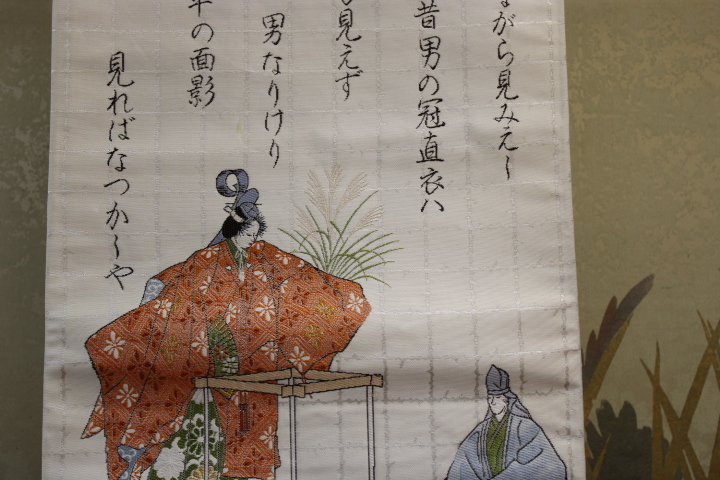 ながら見みえし
昔男の冠直衣ハ
も見えず
男なりけり
平の面影
見ればなつかしや